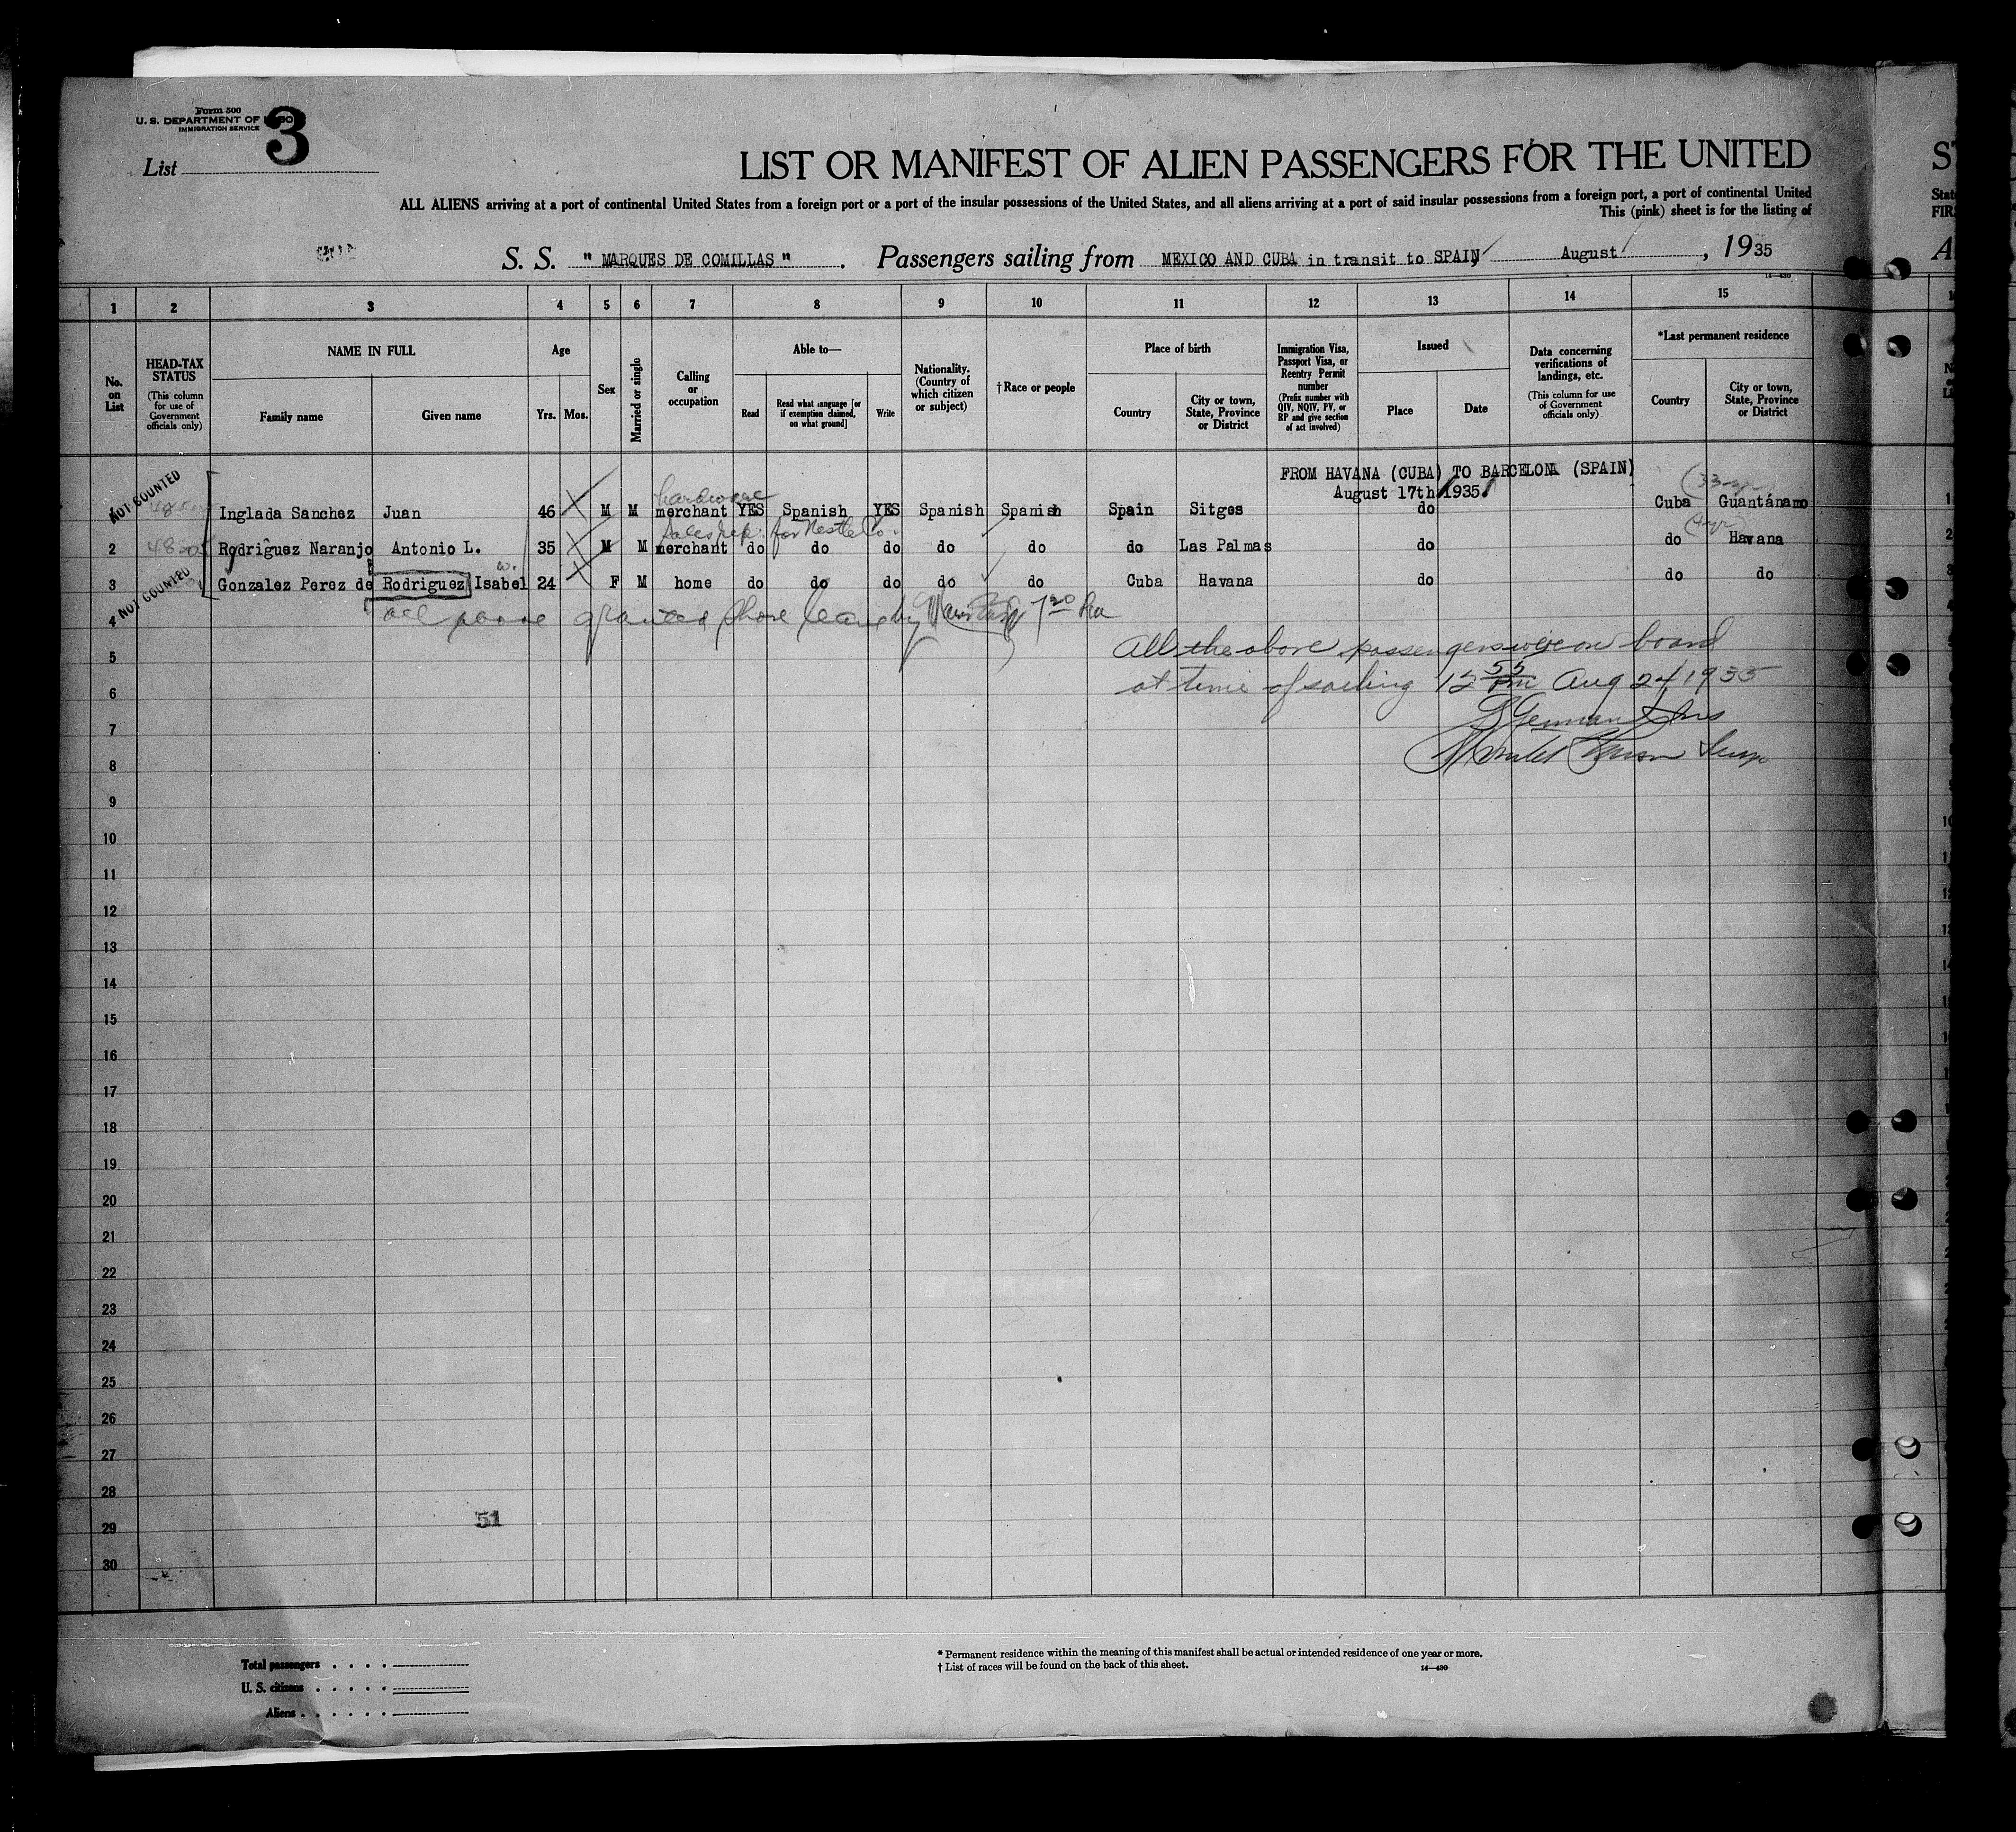 Form 500
U. S. DEPARTMENT OF
IMMIGRATION SERVICE
3
List
LIST OR MANIFEST OF ALIEN PASSENGERS FOR THE UNITED
ALL ALIENS arriving at a port of continental United States from a foreign port or a port of the insular possessions of the United States, and all aliens arriving at a port of said insular possessions from a foreign port, a port of continental United
This (pink) sheet is for the listing of
S. S. " MARQUES DE COMILLAS " . Passengers sailing from MEXICO AND CUBA in transit to SPAIN August , 1935
14—430
1 2 3 4 5 6 7 8 9 10 11 12 13 14 15
No. on List
HEAD-TAX STATUS
(This column for use of Government officials only)
NAME IN FULL
Family name Given name
Age
Yrs. Mos.
Sex
Married or single
Calling or occupation
Able to—
Read
Read what language [or if exemption claimed, on what ground]
Write
Nationality. (Country of which citizen or subject)
†Race or people
Place of birth
Country
City or town, State, Province or District
Immigration Visa, Passport Visa, or Reentry Permit number
(Prefix number with QIV, NQIV, PV, or RP and give section of act involved)
Issued
Place Date
Data concerning verifications of landings, etc.
(This column for use of Government officials only)
*Last permanent residence
Country
City or town, State, Province or District
FROM HAVANA (CUBA) TO BARCELONA (SPAIN)
August 17th 1935
NOT COUNTED
hardware
(33 yr)
1 Inglada Sanchez Juan 46 M M merchant YES Spanish YES Spanish Spanish Spain Sitges do Cuba Guantánamo
Sales rep. for Nestle Co.
(4 yr)
2 Rodriguez Naranjo Antonio L. 35 M M merchant do do do do do do Las Palmas do do Havana
NOT COUNTED
w.
3 Gonzalez Perez de Rodriguez Isabel 24 F M home do do do do do Cuba Havana do do do
4 all above granted shore leave by 7 20
5 All the above passengers were on board
6 at time of sailing 12 55 pm Aug 24 1935
7
8
9
10
11
12
13
14
15
16
17
18
19
20
21
22
23
24
25
26
27
28
29
30
51
Total passengers
U. S. citizens
Aliens
* Permanent residence within the meaning of this manifest shall be actual or intended residence of one year or more.
† List of races will be found on the back of this sheet.
14—430